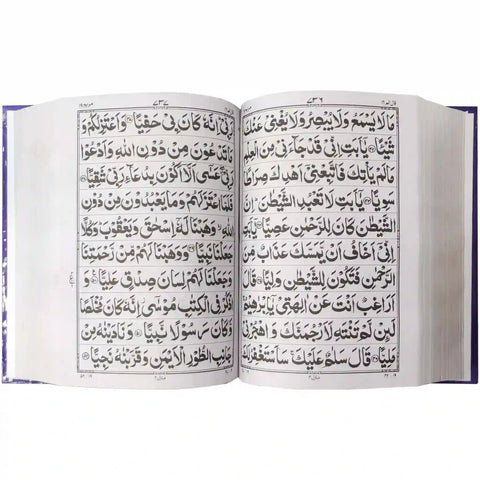 قال الم ١٦
٧٣٦
مَا لَا يَسْمَعُ وَلَا يُبْصِرُ وَلَا يُغْنِيْ عَنْكَ
شَيْـًٔا ﴿٤٢﴾ يٰٓاَبَتِ اِنِّيْ قَدْ جَآءَنِيْ مِنَ الْعِلْمِ
مَا لَمْ يَاْتِكَ فَاتَّبِعْنِيْٓ اَهْدِكَ صِرَاطًا
سَوِيًّا ﴿٤٣﴾ يٰٓاَبَتِ لَا تَعْبُدِ الشَّيْطٰنَ اِنَّ
الشَّيْطٰنَ كَانَ لِلرَّحْمٰنِ عَصِيًّا ﴿٤٤﴾ يٰٓاَبَتِ
اِنِّيْٓ اَخَافُ اَنْ يَّمَسَّكَ عَذَابٌ مِّنَ
الرَّحْمٰنِ فَتَكُوْنَ لِلشَّيْطٰنِ وَلِيًّا ﴿٤٥﴾ قَالَ
اَرَاغِبٌ اَنْتَ عَنْ اٰلِهَتِيْ يٰٓاِبْرٰهِيْمُ
لَئِنْ لَّمْ تَنْتَهِ لَاَرْجُمَنَّكَ وَاهْجُرْنِيْ
مَلِيًّا ﴿٤٦﴾ قَالَ سَلٰمٌ عَلَيْكَ سَاَسْتَغْفِرُ لَكَ
٧٣٧
مريم ١٩
رَبِّيْ اِنَّهٗ كَانَ بِيْ حَفِيًّا ﴿٤٧﴾ وَاَعْتَزِلُكُمْ وَ
مَا تَدْعُوْنَ مِنْ دُوْنِ اللّٰهِ وَاَدْعُوْا
رَبِّيْ عَسٰٓى اَلَّآ اَكُوْنَ بِدُعَآءِ رَبِّيْ شَقِيًّا ﴿٤٨﴾
فَلَمَّا اعْتَزَلَهُمْ وَمَا يَعْبُدُوْنَ مِنْ دُوْنِ
اللّٰهِ وَهَبْنَا لَهٗٓ اِسْحٰقَ وَيَعْقُوْبَ وَكُلًّا
جَعَلْنَا نَبِيًّا ﴿٤٩﴾ وَوَهَبْنَا لَهُمْ مِّنْ رَّحْمَتِنَا
وَجَعَلْنَا لَهُمْ لِسَانَ صِدْقٍ عَلِيًّا ﴿٥٠﴾ وَ
اذْكُرْ فِي الْكِتٰبِ مُوْسٰٓى اِنَّهٗ كَانَ مُخْلَصًا
وَّكَانَ رَسُوْلًا نَّبِيًّا ﴿٥١﴾ وَنَادَيْنٰهُ مِنْ
جَانِبِ الطُّوْرِ الْاَيْمَنِ وَقَرَّبْنٰهُ نَجِيًّا ﴿٥٢﴾